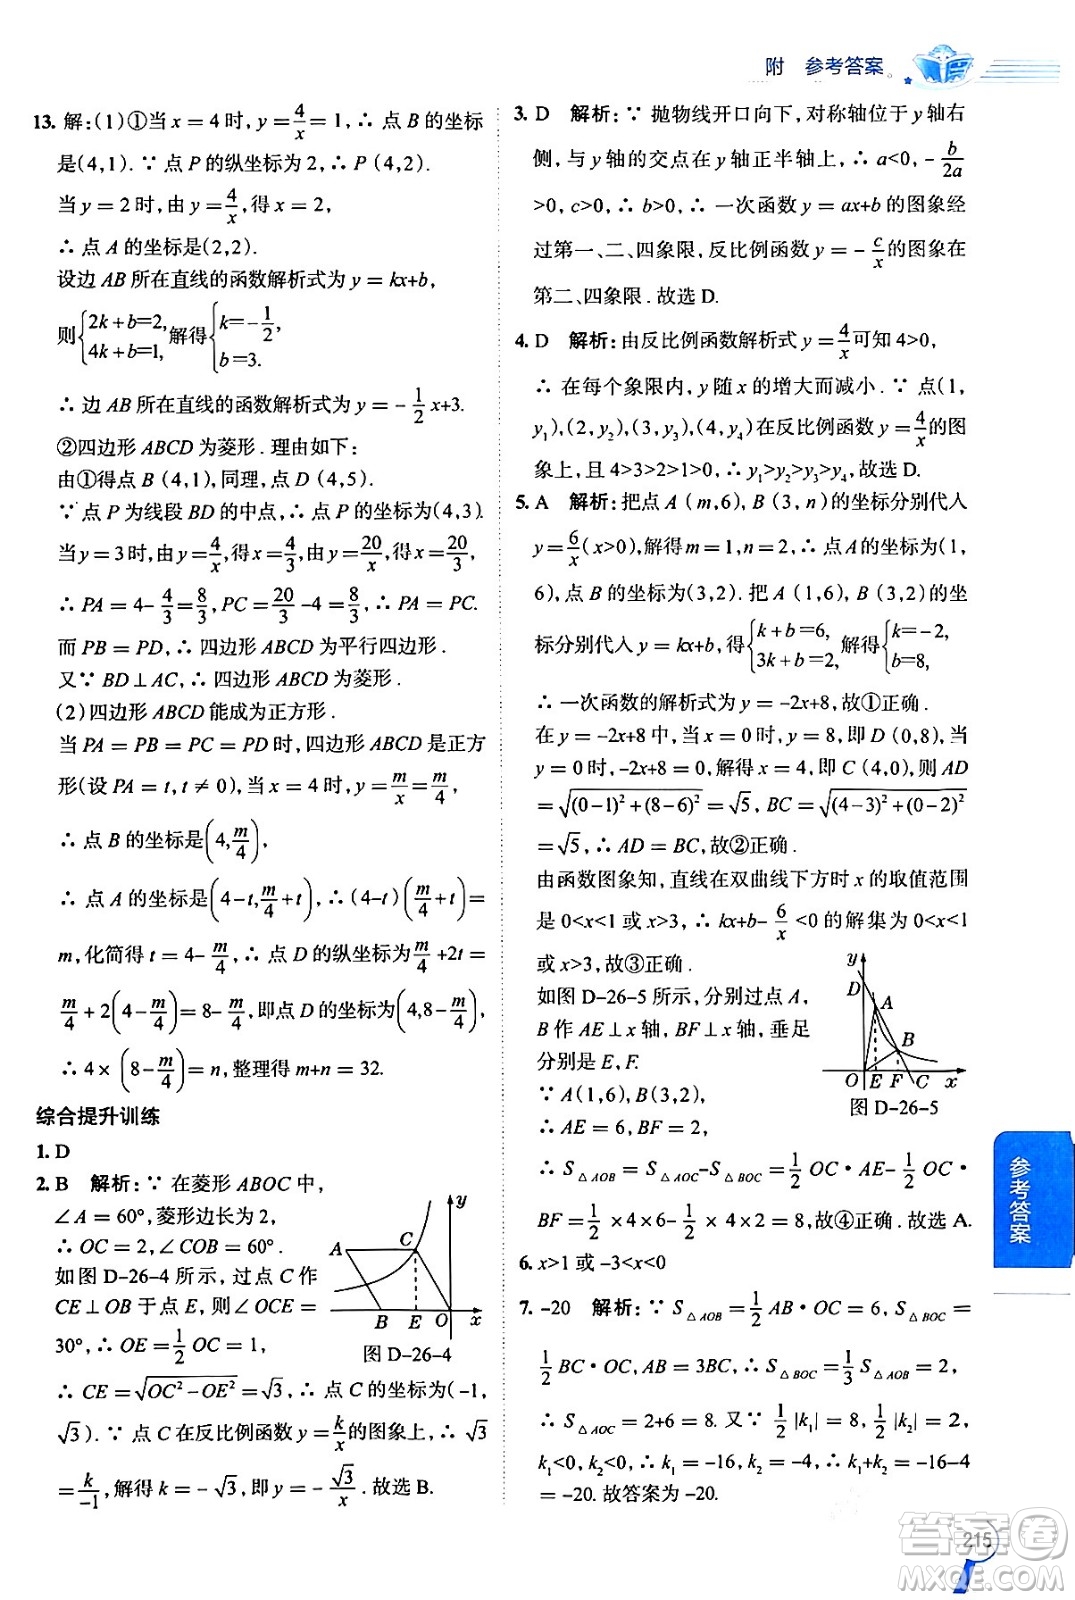 附 参考答案
13. 解:(1)①当 x = 4 时, y = 4/x = 1, ∴ 点 B 的坐标
是(4,1). ∵ 点 P 的纵坐标为 2, ∴ 点 P (4,2).
当 y = 2 时,由 y = 4/x,得 x = 2,
∴ 点 A 的坐标是(2,2).
设边 AB 所在直线的函数解析式为 y = kx+b,
则{2k+b=2, 4k+b=1, 解得{k=-1/2, b=3.
∴ 边 AB 所在直线的函数解析式为 y = -1/2 x+3.
②四边形 ABCD 为菱形 . 理由如下:
由①得点 B (4,1),同理,点 D (4,5).
∵ 点 P 为线段 BD 的中点, ∴ 点 P 的坐标为(4,3).
当 y = 3 时,由 y = 4/x,得 x = 4/3,由 y = 20/x,得 x = 20/3,
∴ PA = 4- 4/3 = 8/3, PC = 20/3 -4 = 8/3, ∴ PA = PC.
而 PB = PD, ∴ 四边形 ABCD 为平行四边形 .
又∵ BD⊥AC, ∴ 四边形 ABCD 为菱形 .
(2) 四边形 ABCD 能成为正方形 .
当 PA = PB = PC = PD 时,四边形 ABCD 是正方
形(设 PA = t, t ≠ 0),当 x = 4 时, y = m/x = m/4,
∴ 点 B 的坐标是(4, m/4),
∴ 点 A 的坐标是(4-t, m/4+t), ∴ (4-t)(m/4+t) =
m,化简得 t = 4- m/4, ∴ 点 D 的纵坐标为 m/4 +2t =
m/4 +2(4- m/4) = 8- m/4, ∴ 点 D 的坐标为(4,8- m/4),
∴ 4×(8- m/4) = n,整理得 m+n = 32.
综合提升训练
1. D
2. B 解析: ∵ 在菱形 ABOC 中,
∠A = 60°,菱形边长为 2,
∴ OC = 2,∠COB = 60°.
如图 D-26-4 所示,过点 C 作
CE⊥OB 于点 E,则∠OCE =
30°, ∴ OE = 1/2 OC = 1,
y
A
C
B E O x
图 D-26-4
∴ CE = √(OC²-OE²) = √3, ∴ 点 C 的坐标为(-1,
√3). ∵ 点 C 在反比例函数 y = k/x 的图象上, ∴ √3
= k/-1,解得 k = -√3,即 y = -√3/x. 故选 B.
3. D 解析: ∵ 抛物线开口向下,对称轴位于 y 轴右
侧,与 y 轴的交点在 y 轴正半轴上, ∴ a<0, - b/2a
>0, c>0, ∴ b>0, ∴ 一次函数 y = ax+b 的图象经
过第一、二、四象限,反比例函数 y = - c/x 的图象在
第二、四象限 . 故选 D.
4. D 解析: 由反比例函数解析式 y = 4/x 可知 4>0,
∴ 在每个象限内, y 随 x 的增大而减小 . ∵ 点(1,
y₁),(2, y₂),(3, y₃),(4, y₄)在反比例函数 y = 4/x 的图
象上,且 4>3>2>1>0, ∴ y₁>y₂>y₃>y₄,故选 D.
5. A 解析: 把点 A (m,6), B (3, n)的坐标分别代入
y = 6/x (x>0),解得 m = 1, n = 2, ∴ 点 A 的坐标为(1,
6),点 B 的坐标为(3,2). 把 A (1,6), B (3,2)的坐
标分别代入 y = kx+b,得{k+b=6, 3k+b=2, 解得{k=-2, b=8,
∴ 一次函数的解析式为 y = -2x+8,故①正确 .
在 y = -2x+8 中,当 x = 0 时, y = 8,即 D (0,8),当
y = 0 时, -2x+8 = 0,解得 x = 4,即 C (4,0),则 AD
= √((0-1)²+(8-6)²) = √5, BC = √((4-3)²+(0-2)²)
= √5, ∴ AD = BC,故②正确 .
由函数图象知,直线在双曲线下方时 x 的取值范围
是 0<x<1 或 x>3, ∴ kx+b- 6/x <0 的解集为 0<x<1
或 x>3,故③正确 .
如图 D-26-5 所示,分别过点 A,
B 作 AE⊥x 轴, BF⊥x 轴,垂足
分别是 E, F.
∵ A(1,6), B(3,2),
∴ AE = 6, BF = 2,
y
D
A
B
O E F C x
图 D-26-5
∴ S△AOB = S△AOC-S△BOC = 1/2 OC·AE- 1/2 OC·
BF = 1/2 ×4×6- 1/2 ×4×2 = 8,故④正确 . 故选 A.
6. x>1 或 -3<x<0
7. -20 解析: ∵ S△AOB = 1/2 AB·OC = 6, S△BOC =
1/2 BC·OC, AB = 3BC, ∴ S△BOC = 1/3 S△AOB = 2,
∴ S△AOC = 2+6 = 8. 又∵ 1/2 |k₁| = 8, 1/2 |k₂| = 2,
k₁<0, k₂<0, ∴ k₁ = -16, k₂ = -4, ∴ k₁+k₂ = -16-4
= -20. 故答案为 -20.
参考答案
215
答案圈
MXQE.COM